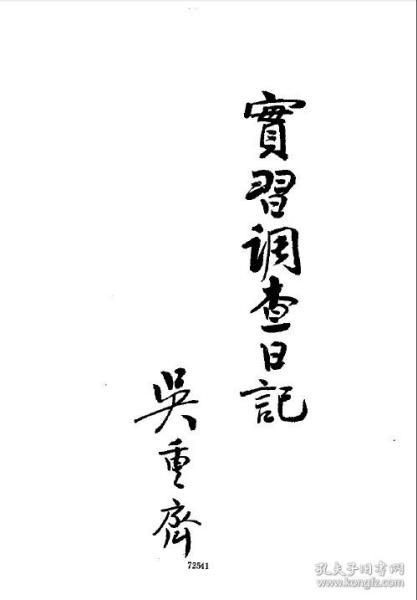 實習调查日記
吳重齋
72541
孔夫子旧书网
www.kongfz.com